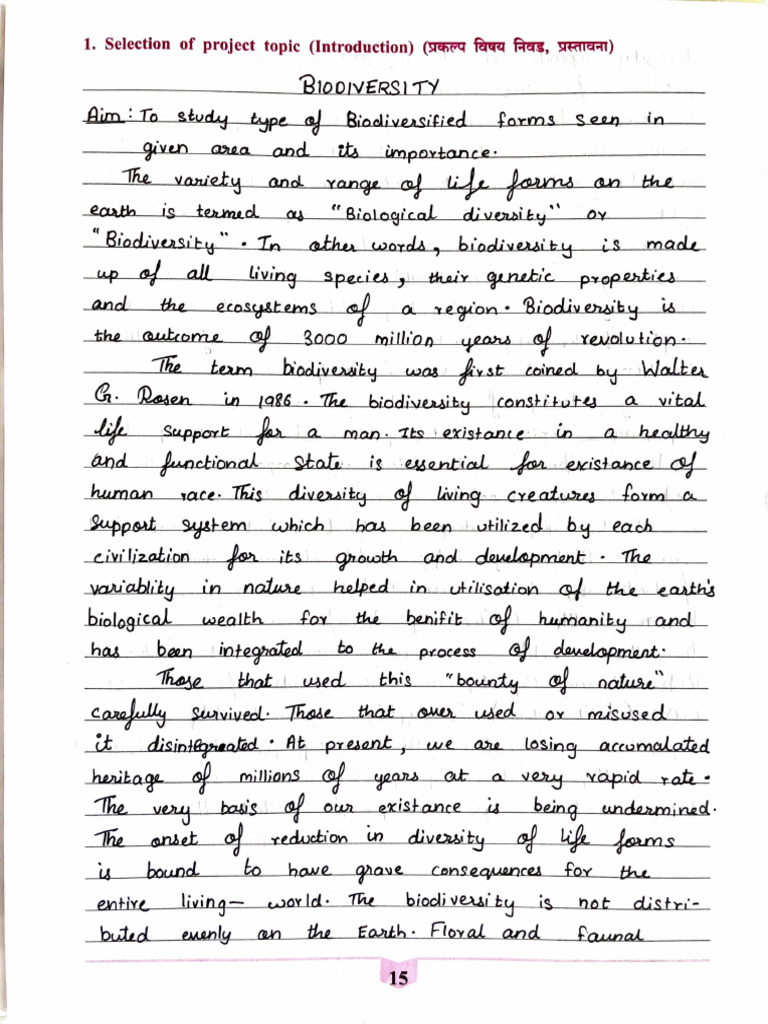 1. Selection of project topic (Introduction) (प्रकल्प विषय निवड, प्रस्तावना)
BIODIVERSITY
Aim : To study type of Biodiversified forms seen in
given area and its importance.
The variety and range of life forms on the
earth is termed as "Biological diversity" or
"Biodiversity". In other words, biodiversity is made
up of all living species, their genetic properties
and the ecosystems of a region. Biodiversity is
the outcome of 3000 million years of revolution.
The term biodiversity was first coined by Walter
G. Rosen in 1986. The biodiversity constitutes a vital
life support for a man. Its existance in a healthy
and functional state is essential for existance of
human race. This diversity of living creatures form a
support system which has been utilized by each
civilization for its growth and development. The
variablity in nature helped in utilisation of the earth's
biological wealth for the benifit of humanity and
has been integrated to the process of development.
Those that used this "bounty of nature"
carefully survived. Those that over used or misused
it disintegreated. At present, we are losing accumalated
heritage of millions of years at a very rapid rate.
The very basis of our existance is being undermined.
The onset of reduction in diversity of life forms
is bound to have grave consequences for the
entire living- world. The biodiversity is not distri-
buted evenly on the Earth. Floral and faunal
15